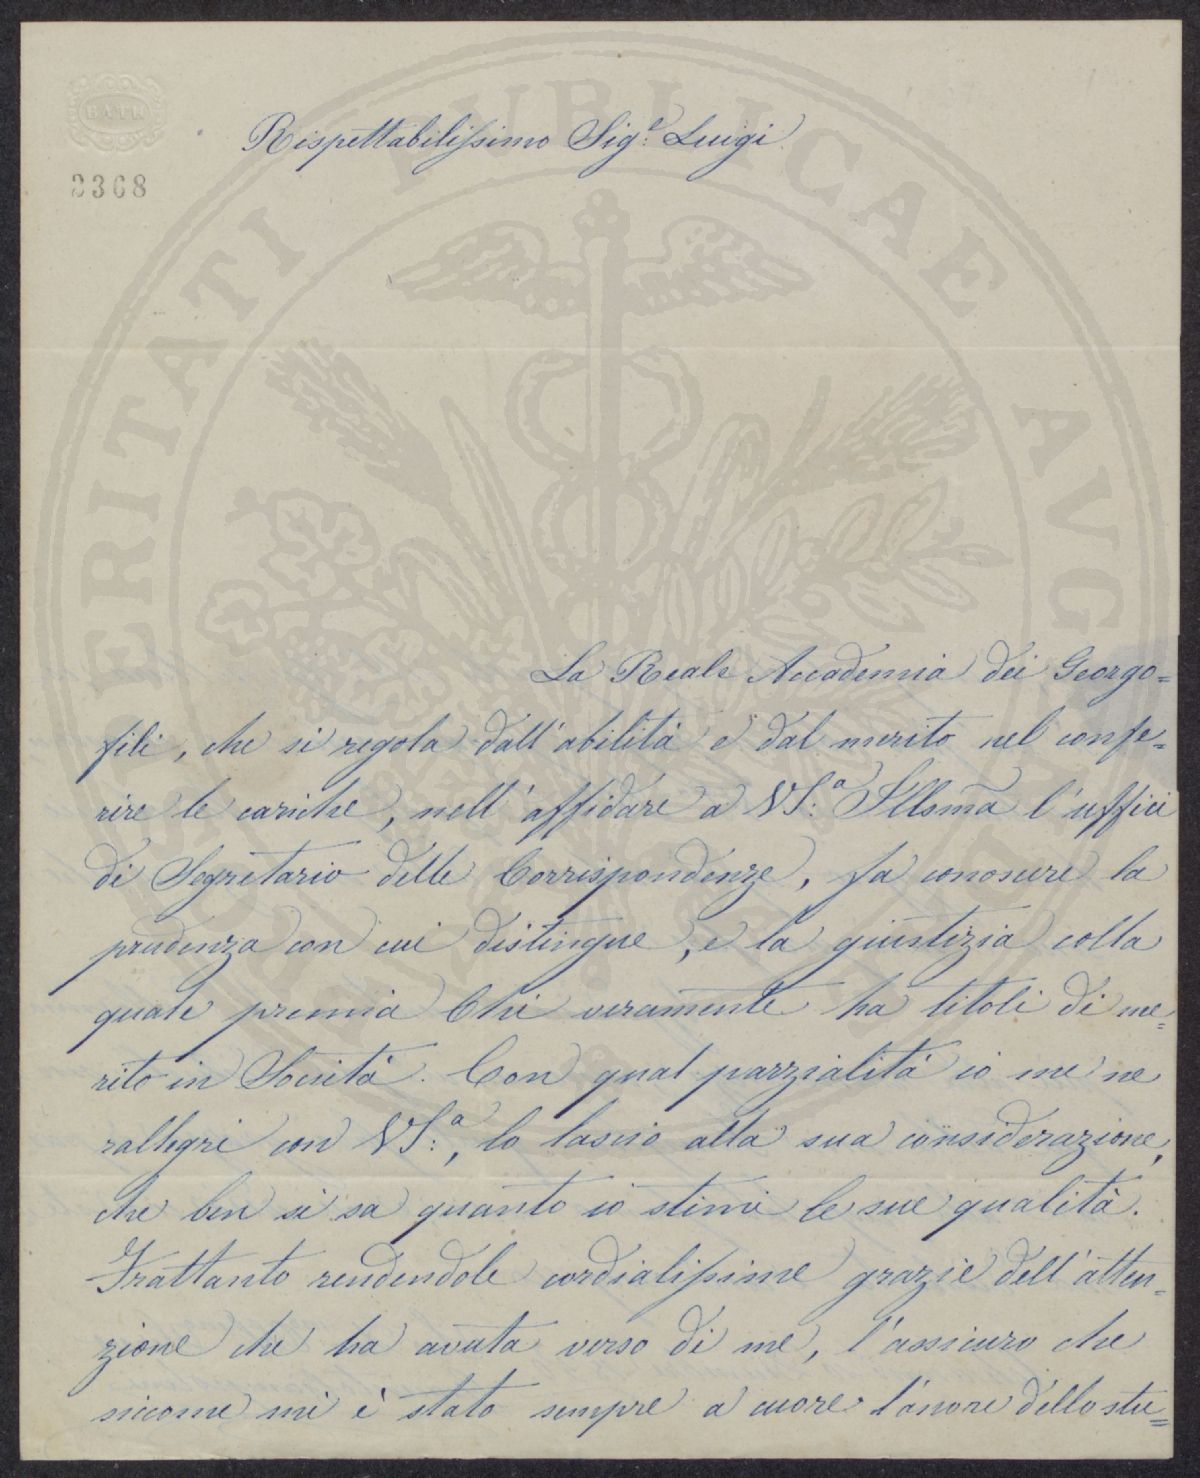 BATH
2368
Rispettabilissimo Sig.e Luigi
La Reale Accademia dei Georgo=
fili, che si regola dall'abilità e dal merito nel confe=
rire le cariche, nell'affidare a VS:a Illsma l'uffici
di Segretario delle Corrispondenze, fa conoscere la
prudenza con cui distingue, e la giustizia colla
quale premia Chi veramente ha titoli di me=
rito in Società. Con qual parzzialità io me ne
rallegri con VS:a, lo lascio alla sua considerazione,
che ben si sa quanto io stimi le sue qualità.
Frattanto rendendole cordialissime grazie dell'atten=
zione che ha avuta verso di me, l'assicuro che
siccome mi è stato sempre a cuore l'amore dello stu=
PROSPERITATI PUBLICAE AUG